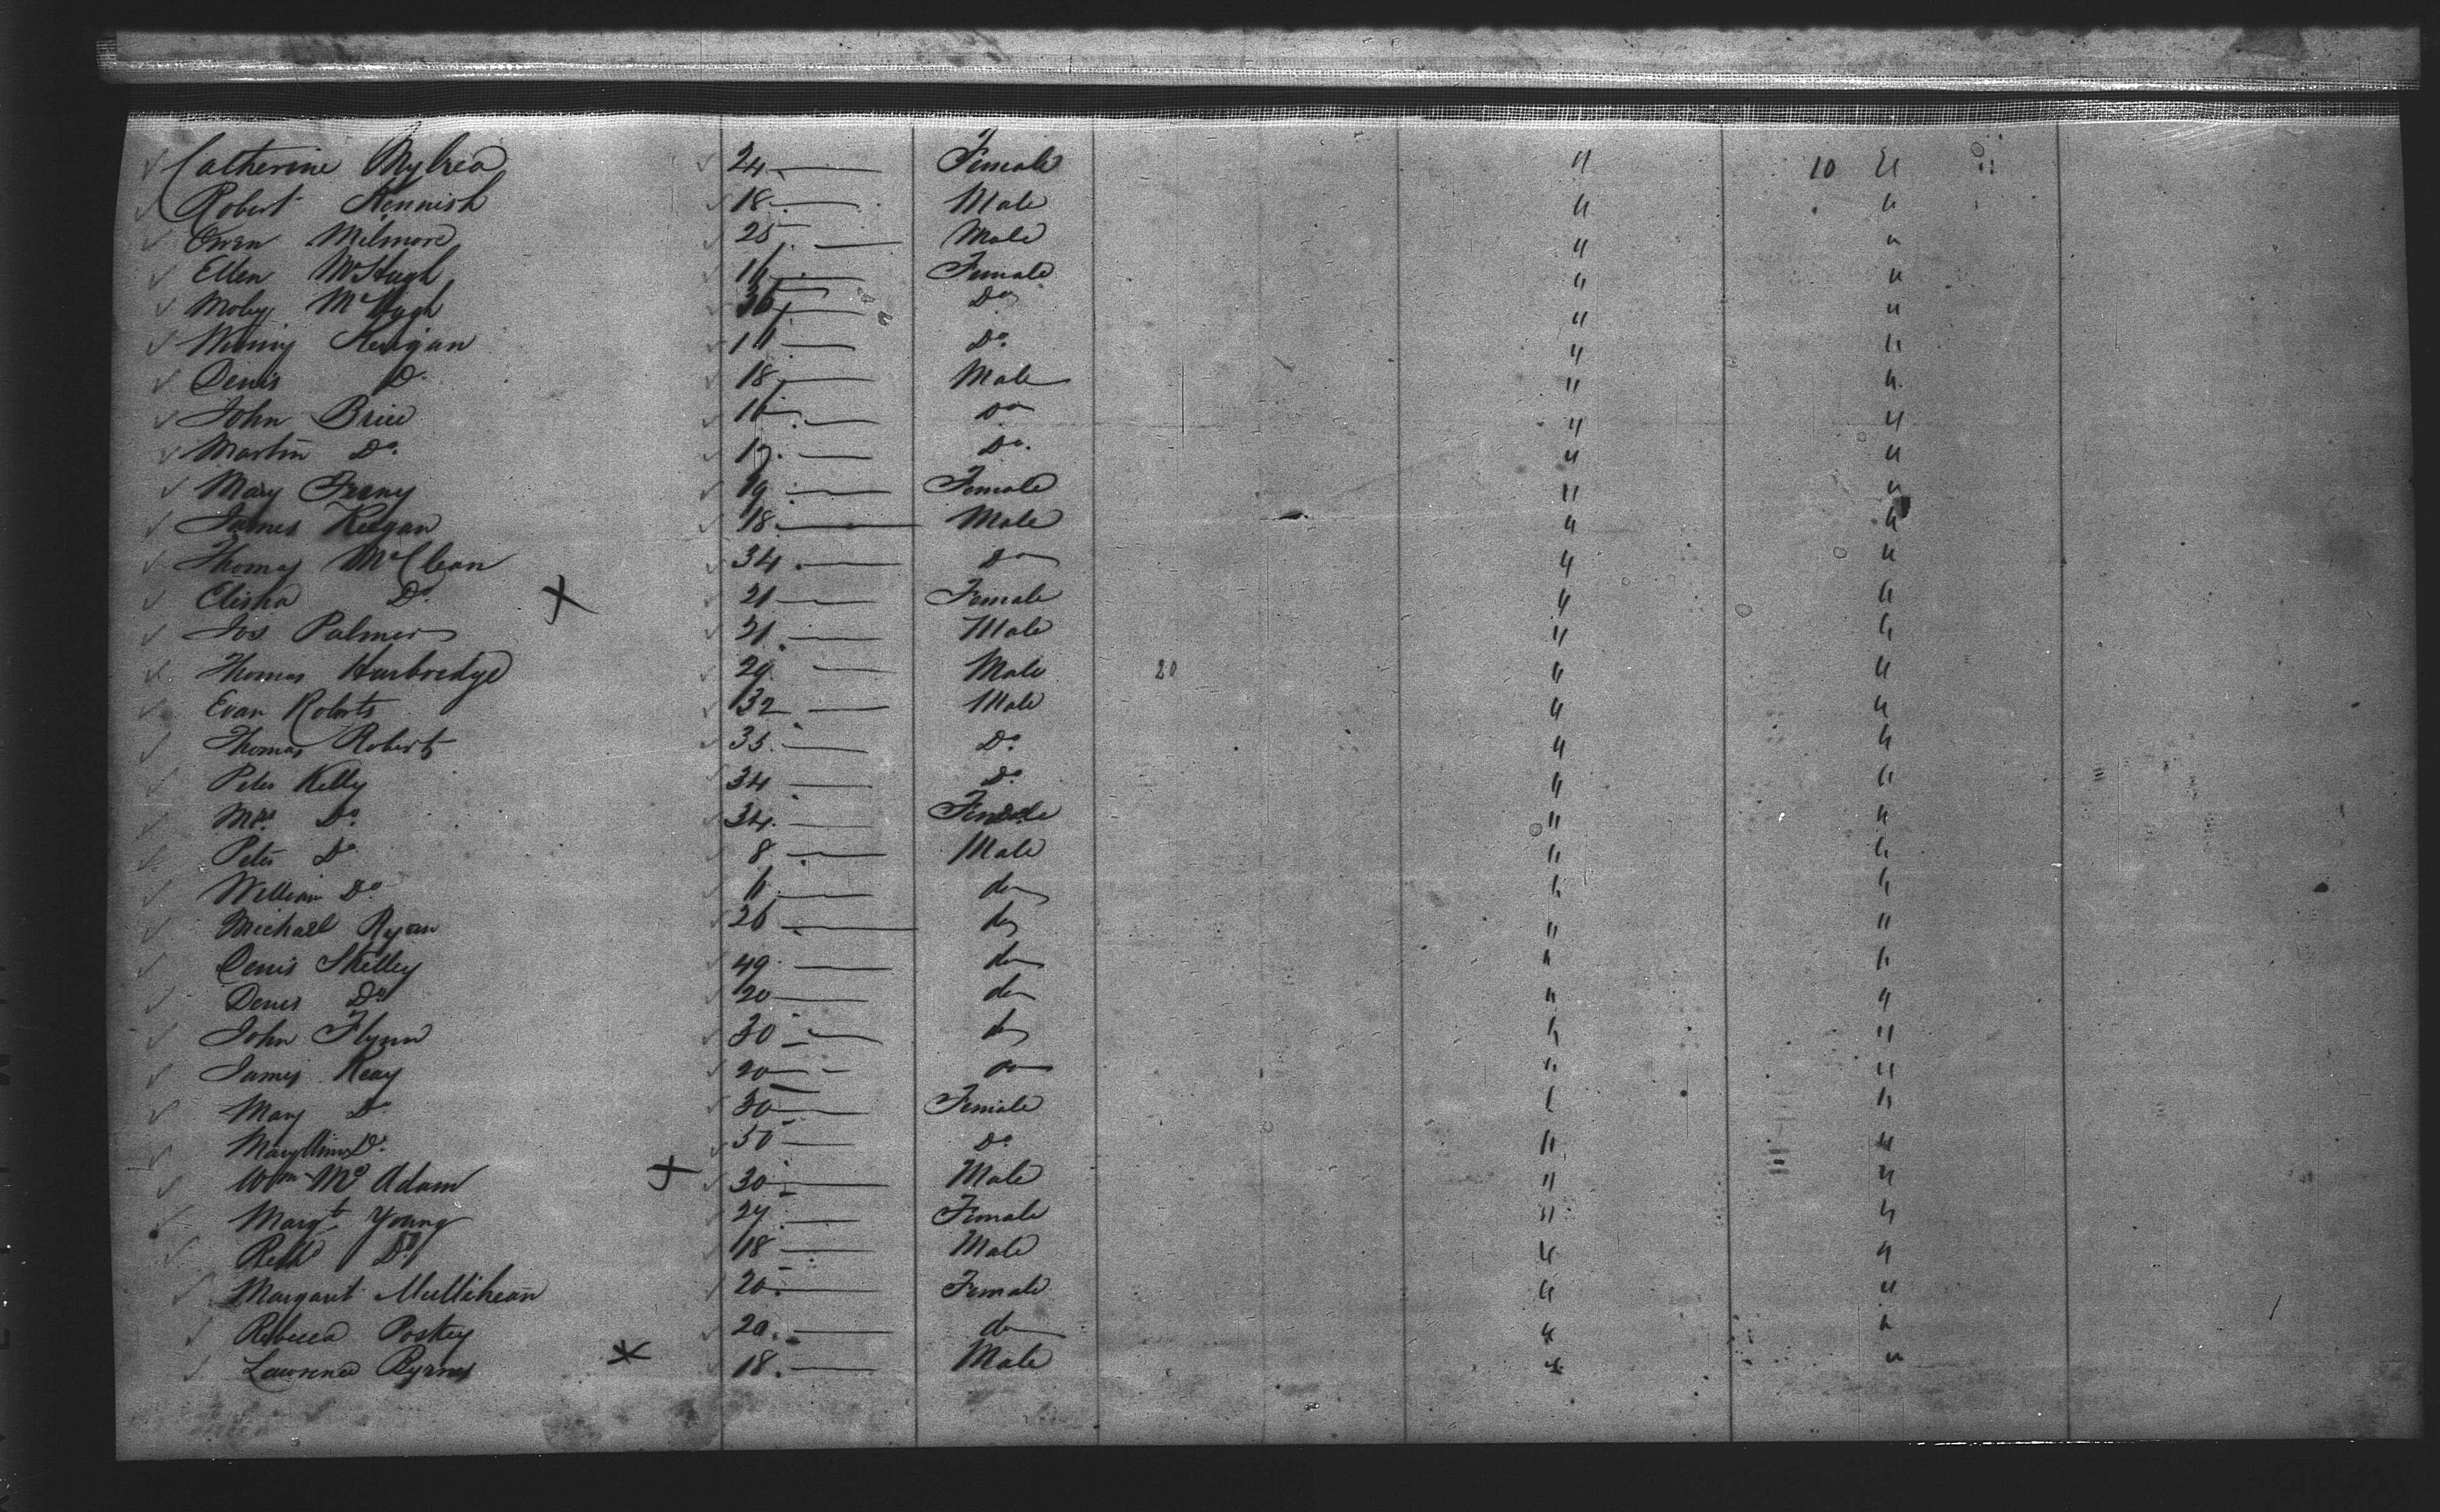 Catherine Mylrea 24 Female " 10 "
Robert Kennish 18 Male " "
Owen Milmore 25 Male " "
Ellen McHugh 16 Female " "
McHugh 36 Do " "
Winny Kerigan 16 Do " "
Denis Do 18 Male " "
John Brice 16 Do " "
Martin Do 17 Do " "
Mary Feeny 19 Female " "
James Keegan 18 Male " "
Thomas McClean 34 Do " "
Elisha Do X 21 Female " "
Jos Palmer 21 Male " "
Thomas Harbridge 29 Male 20 " "
Evan Roberts 32 Male " "
Thomas Roberts 35 Do " "
Peter Kelly 34 Do " "
Mrs Do 34 Female " "
Peter Do 8 Male " "
William Do 6 do " "
Michael Ryan 26 do " "
Denis Skelley 49 do " "
Denis Do 20 do " "
John Flynn 30 do " "
James Keay 20 do " "
Mary Do 30 Female " "
Mary Ann Do 50 Do " "
Wm McAdam X 30 Male " "
Margt Young 24 Female " "
Do 18 Male " "
Margaret 20 Female " "
Rebecca Poskey 20 do " "
Lawrence Byrnes X 18 Male " "